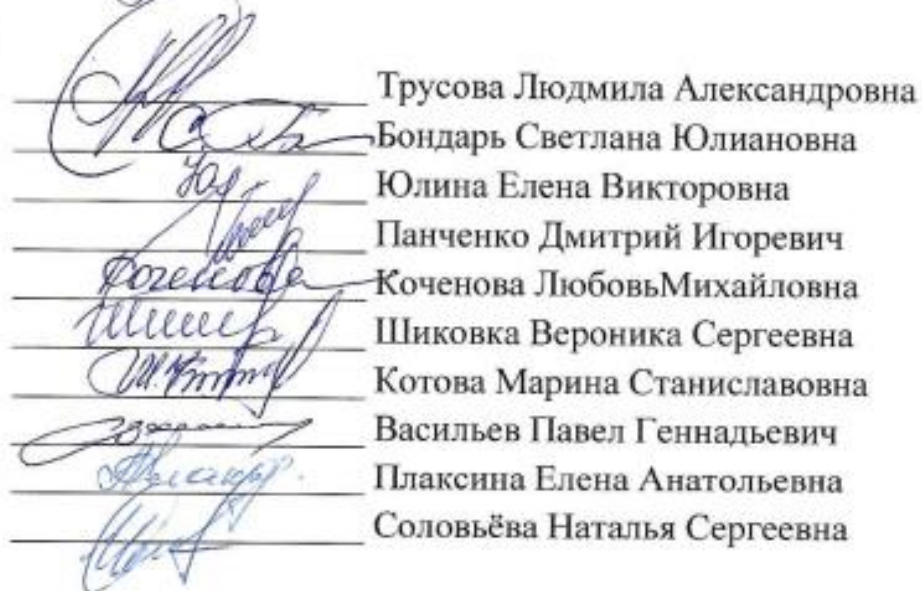 Трусова Людмила Александровна
Бондарь Светлана Юлиановна
Юлина Елена Викторовна
Панченко Дмитрий Игоревич
Коченова ЛюбовьМихайловна
Шиковка Вероника Сергеевна
Котова Марина Станиславовна
Васильев Павел Геннадьевич
Плаксина Елена Анатольевна
Соловьёва Наталья Сергеевна